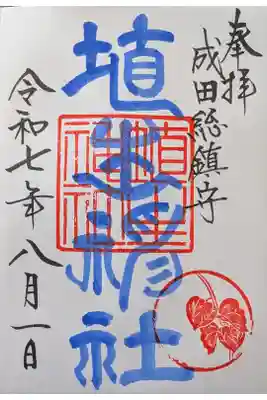 奉拝
成田総鎮守
埴生神社
令和七年八月一日